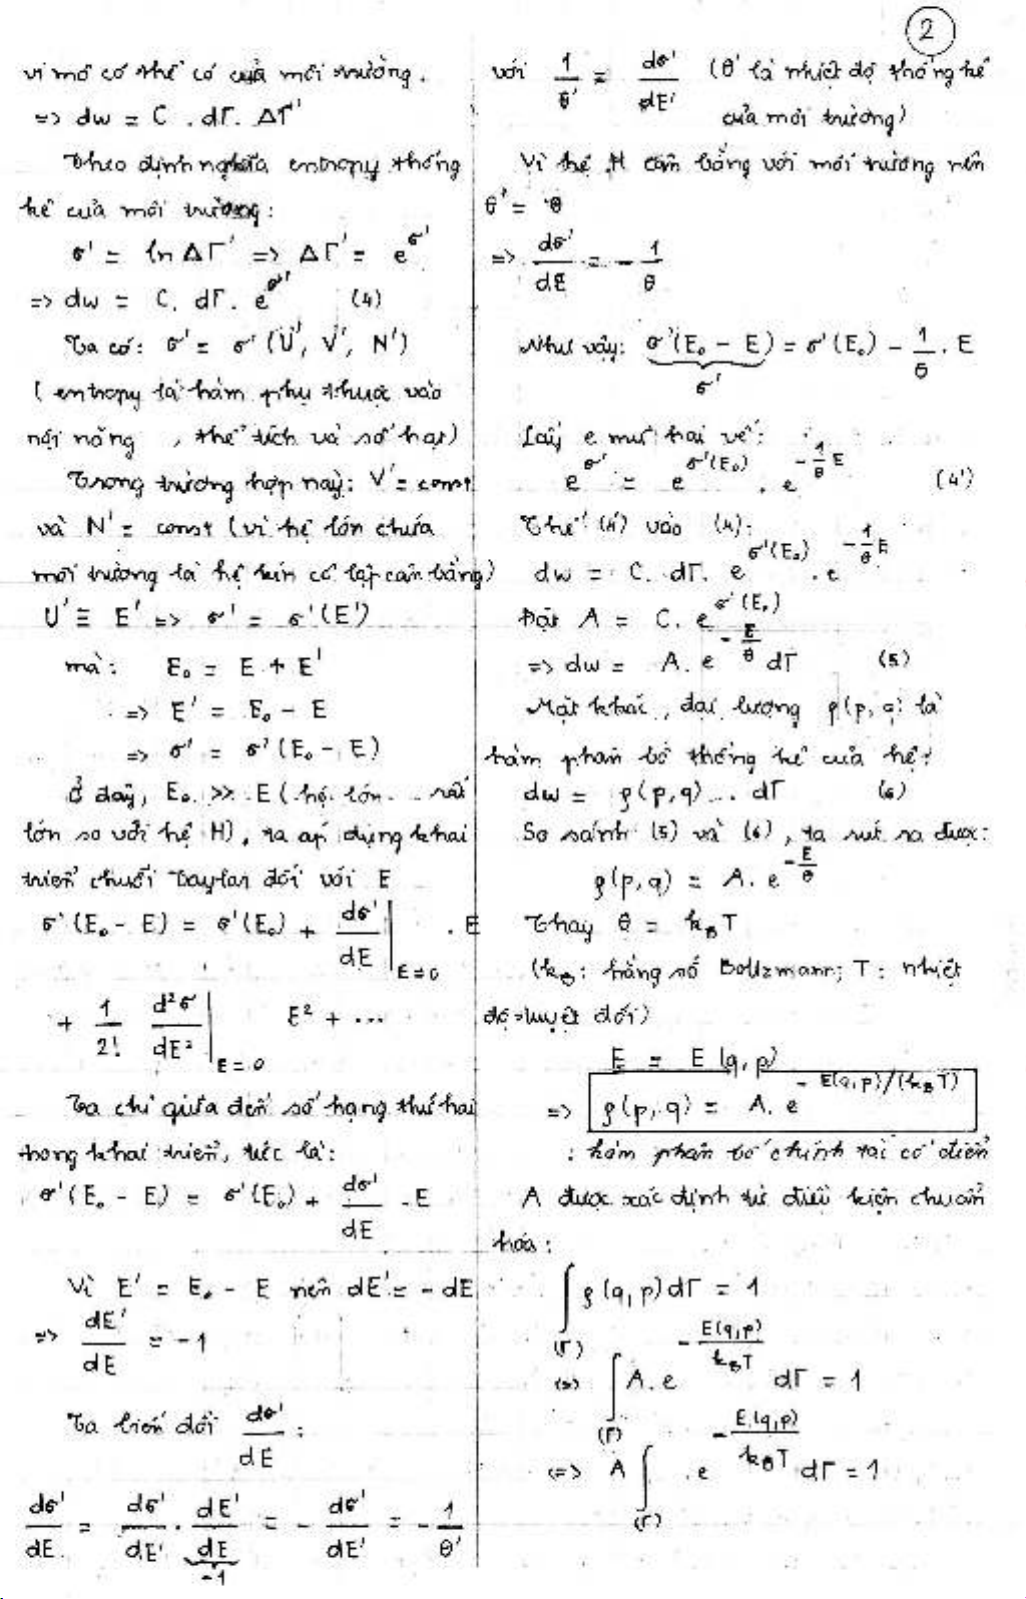 2
vi mô có thể có của môi trường.
=> dw = C . dΓ. ΔΓ'
Theo định nghĩa entropy thống
kê của môi trường:
σ' = ln ΔΓ' => ΔΓ' = e^σ'
=> dw = C. dΓ. e^σ' (4)
Ta có: σ' = σ' (U', V', N')
( entropy là hàm phụ thuộc vào
nội năng , thể tích và số hạt)
Trong trường hợp này: V' = const
và N' = const (vì hệ lớn chứa
môi trường là hệ kín cô lập cân bằng)
U' ≡ E' => σ' = σ'(E')
mà: E₀ = E + E'
=> E' = E₀ - E
=> σ' = σ' (E₀ - E)
Ở đây, E₀ >> E (hệ lớn rất
lớn so với hệ H), ta áp dụng khai
triển chuỗi Taylor đối với E
σ' (E₀ - E) = σ' (E₀) + dσ'/dE |E=0 . E
+ 1/2! d²σ'/dE² |E=0 E² + ...
Ta chỉ giữ đến số hạng thứ hai
trong khai triển, tức là:
σ' (E₀ - E) = σ' (E₀) + dσ'/dE . E
Vì E' = E₀ - E nên dE' = - dE
=> dE'/dE = -1
Ta biến đổi dσ'/dE :
dσ'/dE = dσ'/dE' . dE'/dE = - dσ'/dE' = - 1/θ'
-1
với 1/θ' = dσ'/dE' (θ' là nhiệt độ thống kê
của môi trường)
Vì hệ H cân bằng với môi trường nên
θ' = θ
=> dσ'/dE = - 1/θ
Như vậy: σ'(E₀ - E) = σ' (E₀) - 1/θ . E
σ'
Lấy e mũ hai vế:
e^σ' = e^σ'(E₀) . e^-1/θ E (4')
Thế (4') vào (4):
dw = C. dΓ. e^σ'(E₀) . e^-1/θ E
Đặt A = C. e^σ'(E₀)
=> dw = A. e^-E/θ dΓ (5)
Mặt khác, đại lượng ρ(p, q) là
hàm phân bố thống kê của hệ:
dw = ρ(p,q) dΓ (6)
So sánh (5) và (6), ta rút ra được:
ρ(p,q) = A. e^-E/θ
Thay θ = k_B T
(k_B: hằng số Boltzmann; T: nhiệt
độ tuyệt đối)
E = E (q,p)
=> ρ(p,q) = A. e^-E(q,p)/(k_B T)
: hàm phân bố chính tắc cổ điển
A được xác định từ điều kiện chuẩn
hóa:
∫(Γ) ρ (q,p) dΓ = 1
<=> ∫(Γ) A. e^-E(q,p)/k_B T dΓ = 1
<=> A ∫(Γ) . e^-E(q,p)/k_B T dΓ = 1